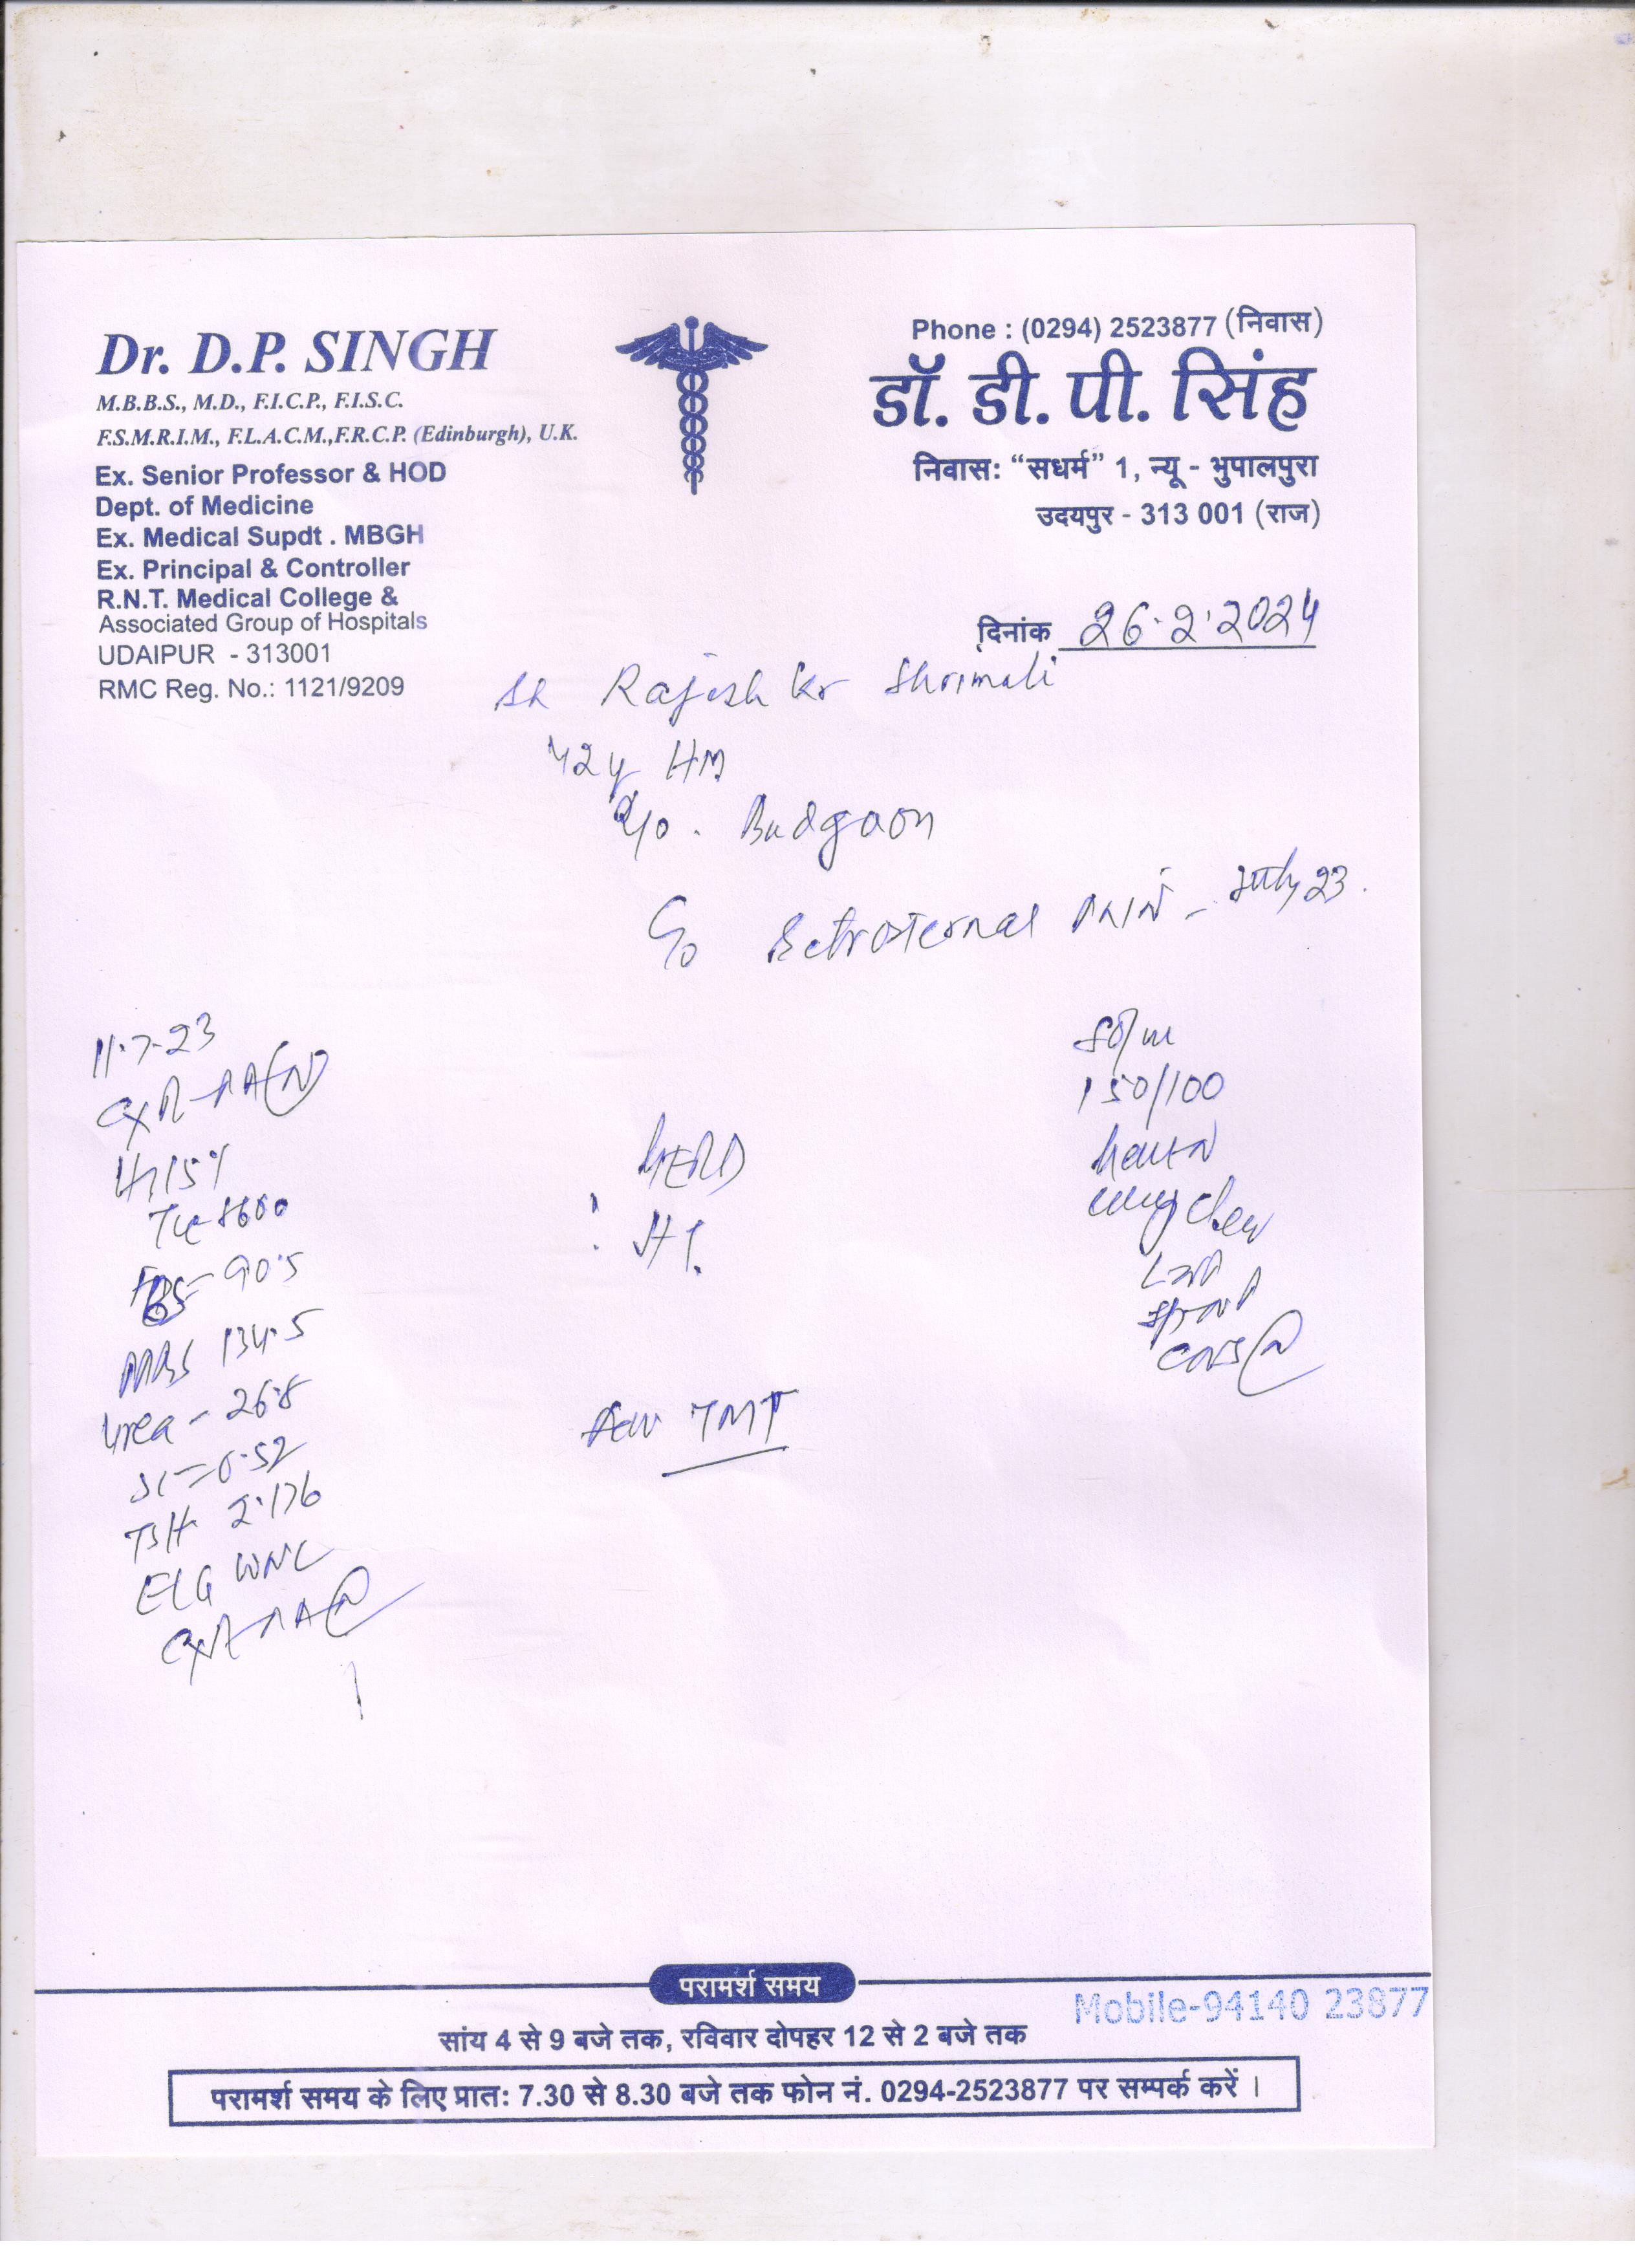 Dr. D.P. SINGH
M.B.B.S., M.D., F.I.C.P., F.I.S.C.
F.S.M.R.I.M., F.L.A.C.M.,F.R.C.P. (Edinburgh), U.K.
Ex. Senior Professor & HOD
Dept. of Medicine
Ex. Medical Supdt . MBGH
Ex. Principal & Controller
R.N.T. Medical College &
Associated Group of Hospitals
UDAIPUR - 313001
RMC Reg. No.: 1121/9209
Phone : (0294) 2523877 (निवास)
डॉ. डी. पी. सिंह
निवास: “सधर्म” 1, न्यू - भुपालपुरा
उदयपुर - 313 001 (राज)
दिनांक 26.2.2024
Rajesh Kr Shrimali
42y HM
R/o. Badgaon
C/o Retrosternal PAIN - July 23.
11.7.23
CXR-PA(N)
Hb 15%
TLC 8600
FBS= 90.5
RBS 134.5
Urea - 26.8
SC=0.52
TSH 2.176
ECG WNL
CXR-PA(N)
GERD
? HT.
Adv TMT
80/m
150/100
Heart N
Lung clear
CNS(N)
परामर्श समय
Mobile-94140 23877
सांय 4 से 9 बजे तक, रविवार दोपहर 12 से 2 बजे तक
परामर्श समय के लिए प्रात: 7.30 से 8.30 बजे तक फोन नं. 0294-2523877 पर सम्पर्क करें ।